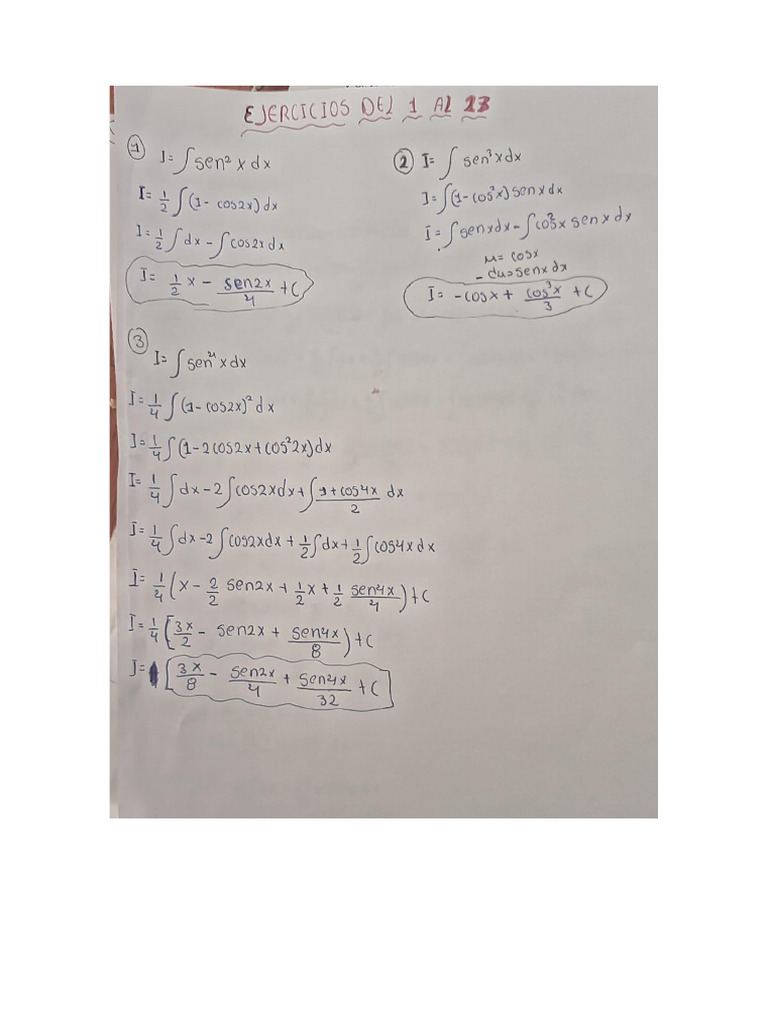 EJERCICIOS DEL 1 AL 23
① I= ∫ sen² x dx
I= 1/2 ∫ (1- cos2x) dx
I= 1/2 ∫ dx - ∫ cos2x dx
I= 1/2 x - sen2x/4 + C
② I= ∫ sen³ x dx
I= ∫ (1- cos²x) sen x dx
I= ∫ sen x dx - ∫ cos²x sen x dx
u = cosx
- du = sen x dx
I= -cos x + cos³x/3 + C
③ I= ∫ sen⁴ x dx
I= 1/4 ∫ (1- cos2x)² dx
I= 1/4 ∫ (1-2cos2x+cos²2x) dx
I= 1/4 ∫ dx - 2 ∫ cos2x dx + ∫ 1+cos4x/2 dx
I= 1/4 ∫ dx - 2 ∫ cos2x dx + 1/2 ∫ dx + 1/2 ∫ cos4x dx
I= 1/4 (x - 2/2 sen2x + 1/2 x + 1/2 sen4x/4) + C
I= 1/4 [3x/2 - sen2x + sen4x/8) + C
I= [3x/8 - sen2x/4 + sen4x/32 + C